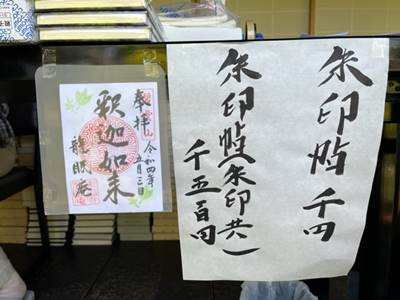 朱印帖 千円
朱印帖(朱印共)
千五百円
奉拝
釈迦如来
令和四年
五月三日
龍眠庵